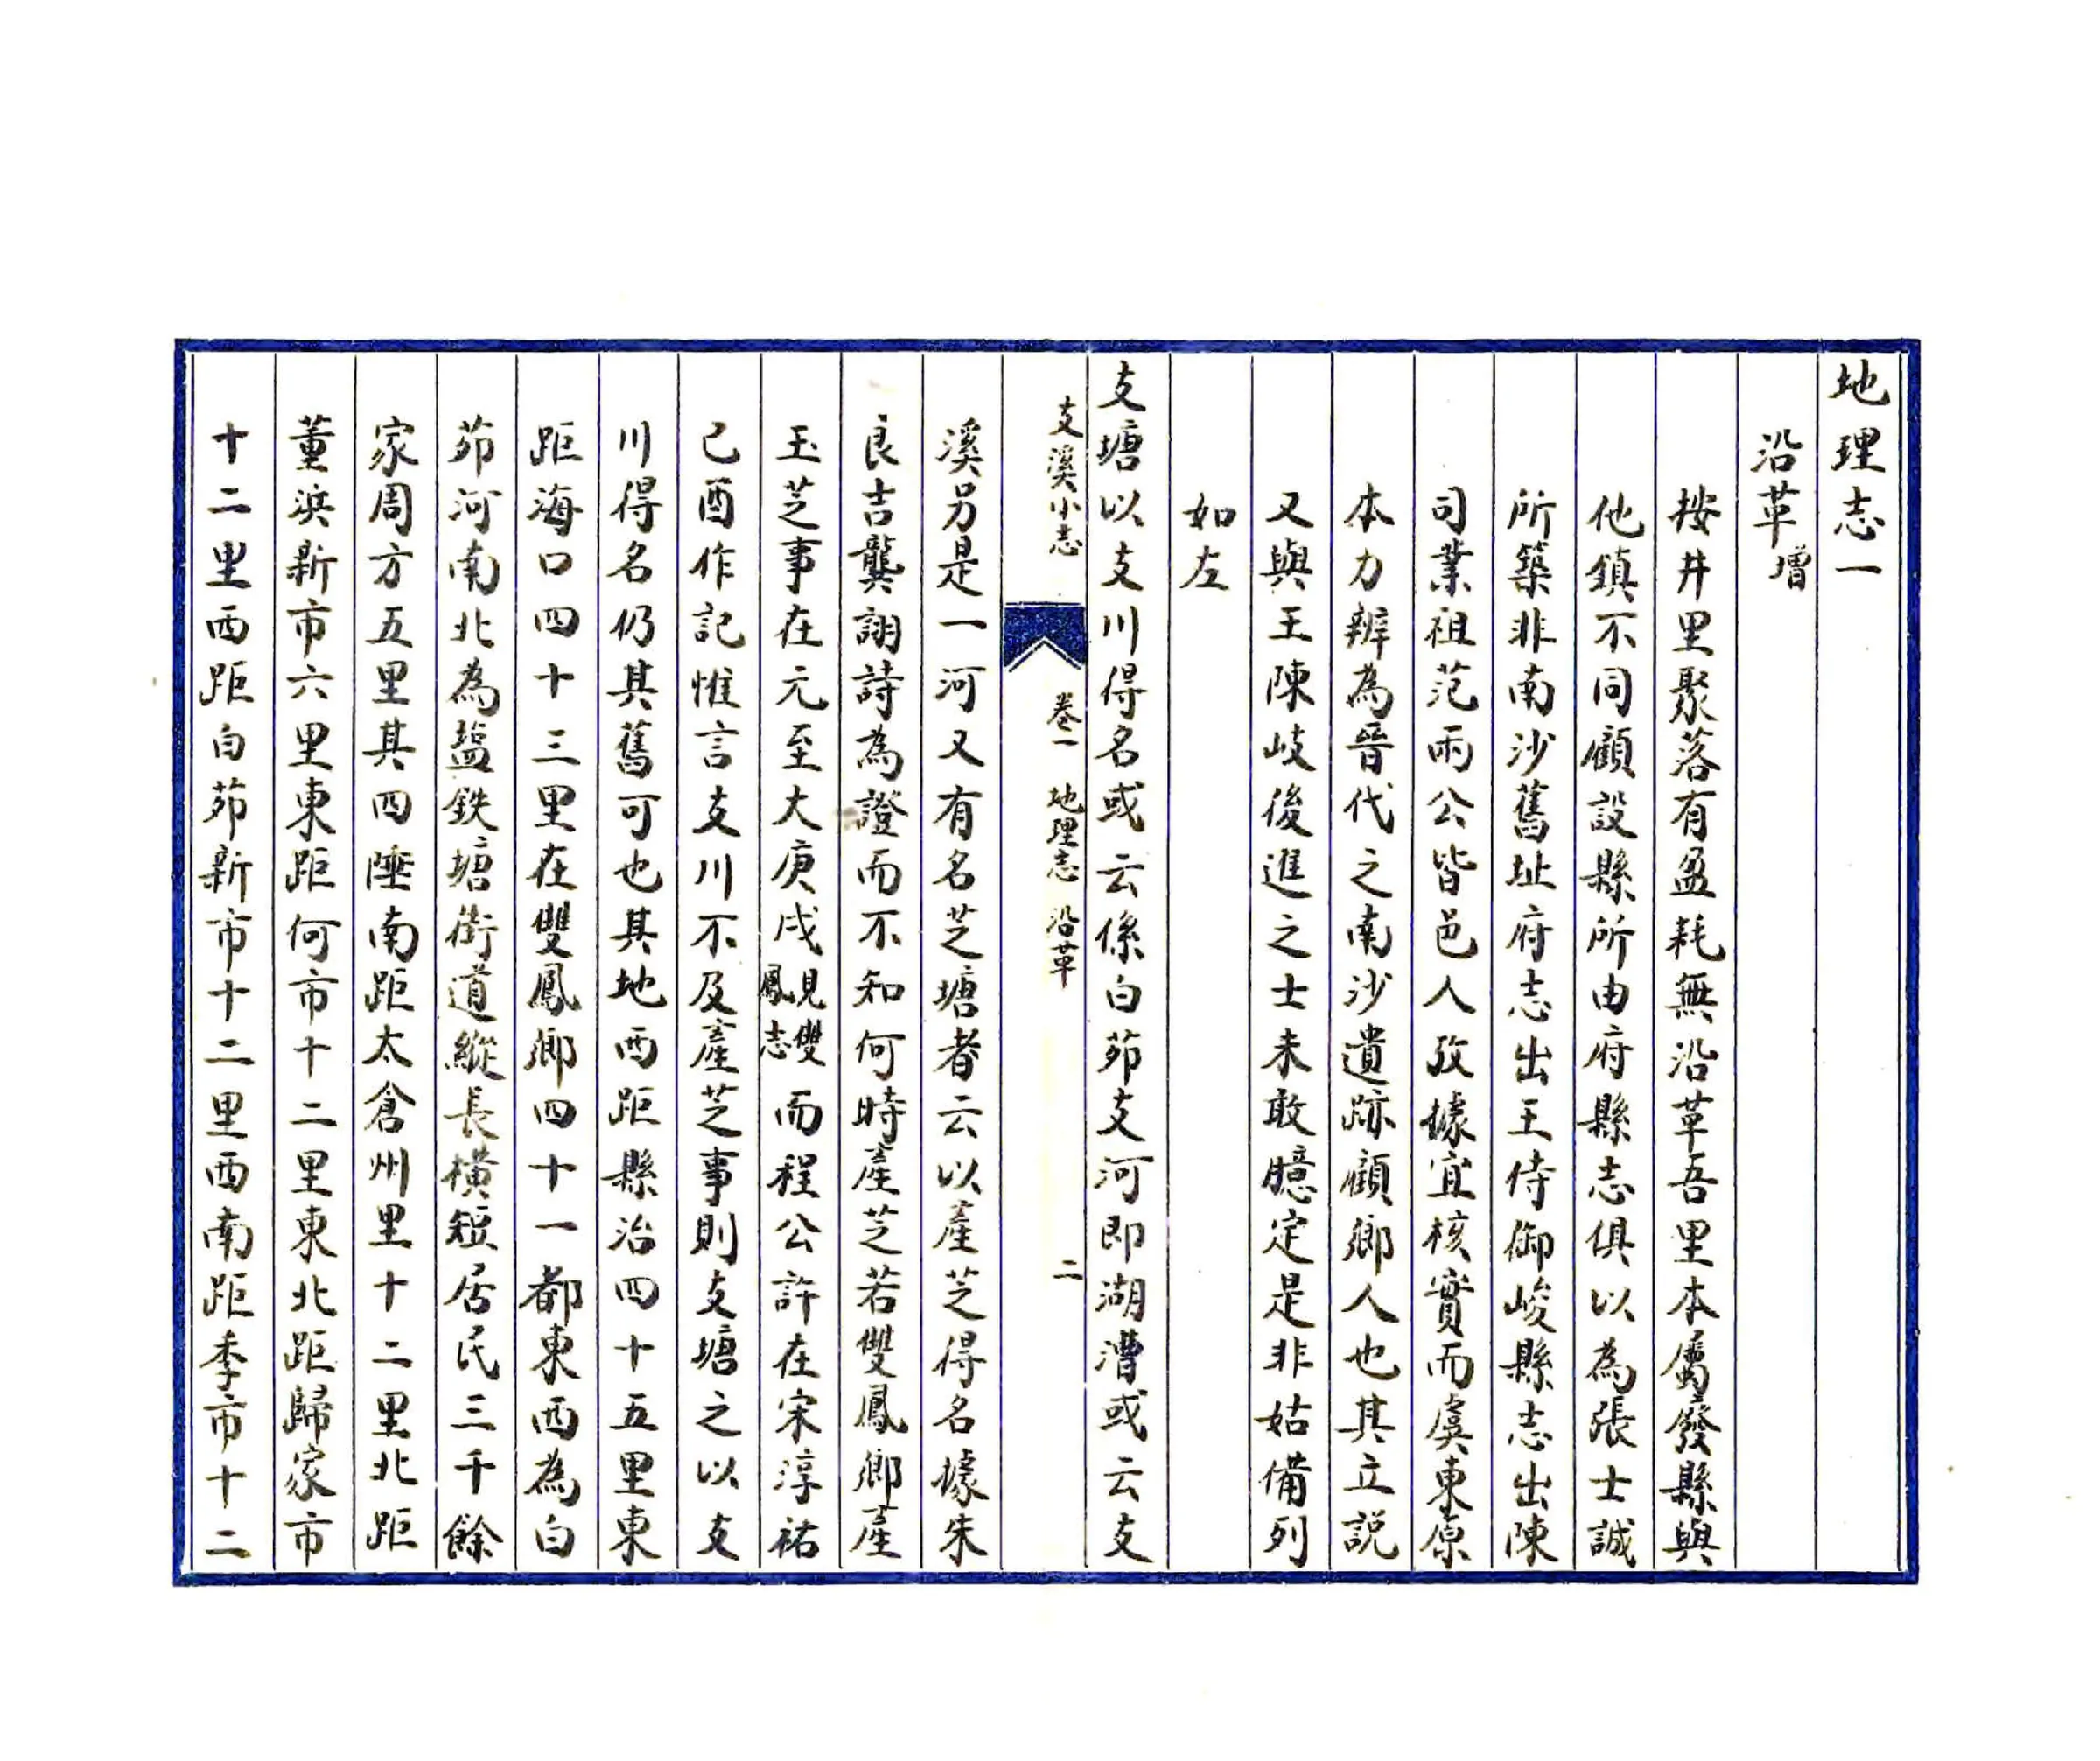 地理志一
沿革增
按井里聚落有盈耗無沿革吾里本屬廢縣與
他鎮不同顧設縣所由府縣志俱以為張士誠
所築非南沙舊址府志出王侍御峻縣志出陳
司業祖范兩公皆邑人攷據宜核實而虞東原
本力辨為晉代之南沙遺跡顧鄉人也其立説
又與王陳岐後進之士未敢臆定是非姑備列
如左
支塘以支川得名或云係白茆支河即湖漕或云支
支溪小志 卷一 地理志 沿革 二
溪另是一河又有名芝塘者云以產芝得名據朱
良吉龔詡詩為證而不知何時產芝若雙鳳鄉產
玉芝事在元至大庚戌見雙鳳志而程公許在宋淳祐
己酉作記惟言支川不及產芝事則支塘之以支
川得名仍其舊可也其地西距縣治四十五里東
距海口四十三里在雙鳳鄉四十一都東西為白
茆河南北為盐鉄塘街道縱長橫短居民三千餘
家周方五里其四陲南距太倉州里十二里北距
董浜新市六里東距何市十二里東北距歸家市
十二里西距白茆新市十二里西南距李市十二